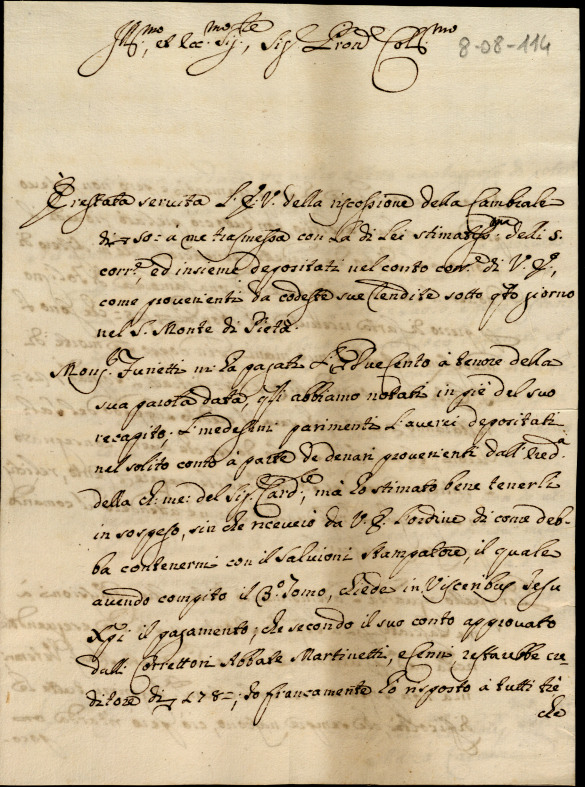 Ill:mo, et Ecc:mo Sig:re, Sig:re Pron Col:mo
8-08-114
È restata servita L'E.V. della riscossione della Cambiale
di 50: à me trasmessa con la di Lei stimatiss:ma delli 5.
corr:e, ed insieme depositati nel conto corr:e di V.E.,
come provenienti da codeste sue Rendite sotto q:to giorno
nel S. Monte di Pietà.
Mons:r Junetti mi hà pagati duecento à tenore della
sua parola data, q:li abbiamo notati in piè del suo
recapito. L'medesimi parimenti l'averei depositati
nel solito conto à parte de denari provenienti dall'Ered:à
della ch: me: del Sig:r Card:le, mà hò stimato bene tenerli
in sospeso, sin che riceverò da V.E. l'ordine di come deb-
ba contenermi con il Salvioni stampatore, il quale
avendo compito il 3:o Tomo, chiede in Visceribus Jesu
Xpi il pagamento, che secondo il suo conto approvato
dalli Correttori Abbate Martinetti, e Cenni, restarebbe cre-
ditore di 478; Io francamente hò risposto à tutti trè
che